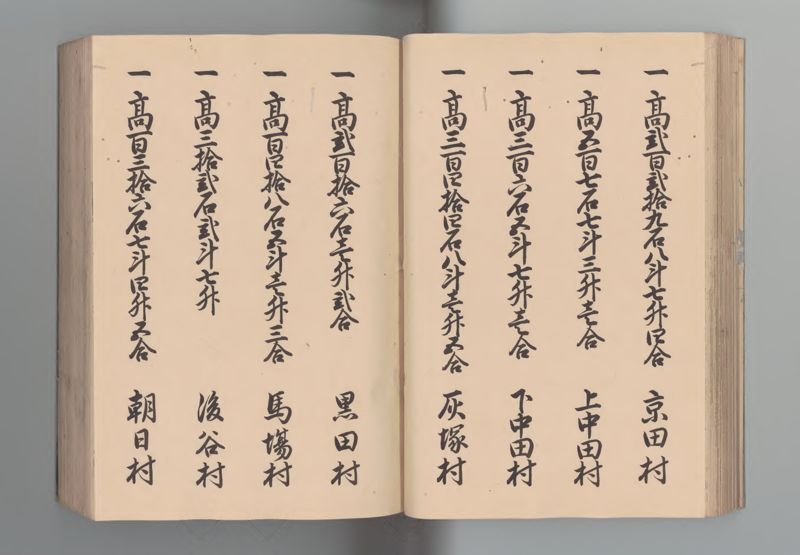 一 高弐百弐拾九石八斗七升四合 京田村
一 高五百七石七斗三升壱合 上中田村
一 高三百六石五斗七升壱合 下中田村
一 高三百四拾四石八斗壱升五合 灰塚村
一 高弐百拾六石壱升弐合 黒田村
一 高百四拾八石五斗壱升三合 馬場村
一 高三拾弐石弐斗七升 後谷村
一 高百三拾六石七斗四升五合 朝日村